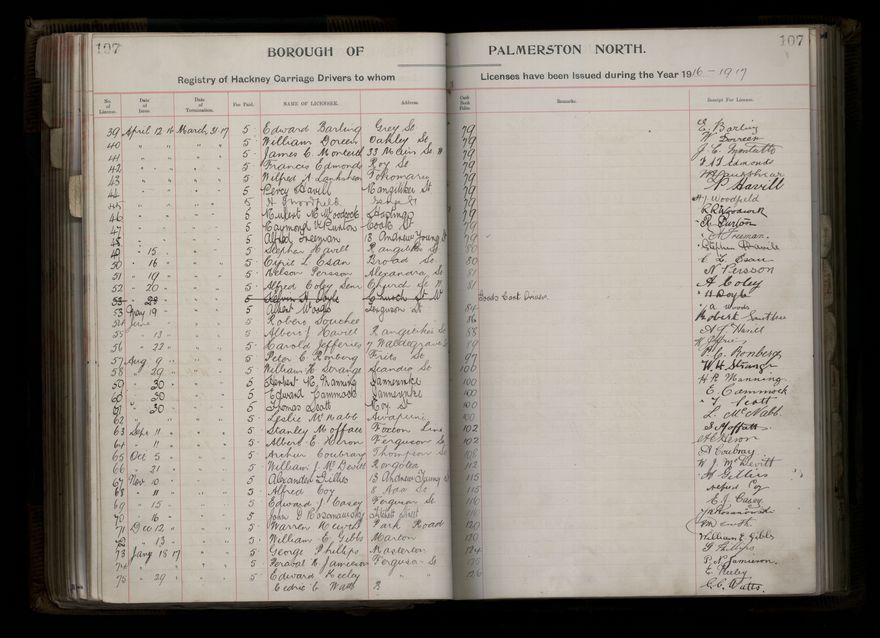 107 107
BOROUGH OF PALMERSTON NORTH.
Registry of Hackney Carriage Drivers to whom Licenses have been Issued during the Year 1916-1917
No. of License. Date of Issue. Date of Termination. Fee Paid. NAME OF LICENSEE. Address. Cash Book Folio. Remarks. Receipt For License.
39 April 12 16 March 31 17 5 Edward Barling Grey St 79 E. Barling
40 " " " " 5 William Doreen Oakley St 79 W Dorreen
41 " " " " 5 James C. 33 Main St W 79 J. C.
42 " " " " 5 Francis Edmonds Roy St 79 Edmonds
43 " " " " 5 Wilfred A Lankshear Tokomaru 79
44 " " " " 5 Percy Havill Rangitikei St 79 P. Havill
45 " " " " 5 H J Woodfield 79 H J Woodfield
46 " " " " 5 M Woodcock Hastings 79 Woodcock
47 " " " " 5 Raymond Purton Cook St 79 R Purton
48 " " " " 5 Alfred Freeman 13 Andrew Young St 79 Freeman.
49 " 15 " " 5 Stephen Havill Rangitikei St 80 Stephen Havill
50 " 16 " " 5 Cyril L Esau Broad St 80 C L Esau
51 " 19 " " 5 Nelson Persson Alexandra St 81 N Persson
52 " 20 " " 5 Alfred Coley Senr Church St W 81 A Coley
53 " 28 5 Doyle Church St W Goods Cart Driver. Doyle
53 May 19 " " 5 Albert Woods Ferguson St 84 A Woods
54 June " " 5 Robert 86 Robert
55 " 13 " " 5 Albert J Havill Rangitikei St 88 A J Havill
56 " 22 " " 5 Harold Jefferies 7 Waldegrave St 89
57 Aug 9 " " 5 Peter C Ronberg Fitz St 97 P. C. Ronberg
58 " 29 " " 5 William H Strange Scandia St 100 W. H. Strange
59 " 30 " " 5 Herbert R. Manning Dannevirke 100 H R Manning
60 " 30 " " 5 Edward Cammock Dannevirke 100 E. Cammock
61 " 30 " " 5 Thomas Scott Roy St 100 T Scott
62 " " " 5 Leslie McNabb Awapuni 100 L. McNabb.
63 Sept 11 " " 5 Stanley Moffatt Foxton Line 102 S Moffatt
64 " 11 " " 5 Albert E. Heron Ferguson St 102 A E Heron
65 Oct 5 " " 5 Arthur Coubray Thompson St 108 A Coubray
66 " 21 " " 5 William J. McDevitt Rongotea 112 W J. McDevitt
67 Nov 10 " " 5 Alexander Gillies 13 Andrew Young St 115 A Gillies
68 " 11 " " 5 Alfred Coy 8 Ada St 115 Alfred Coy
69 " 15 " " 5 Edward J Casey Ferguson St 116 E. J. Casey
70 " 16 " " 5 John Kosanowski Street 116 Kosanowski
71 Dec 12 " " 5 Warren Park Road 120
72 " 13 " " 5 William E Gibbs Marton 120 William E Gibbs
73 Jany 18 17 " " 5 George Phillips Masterton 124 G Phillips
74 " " " 5 Percival N Jamieson Ferguson St 125 P. N. Jamieson.
75 " 29 " " 5 Edward Keeley " " 126 E. Keeley
5 Cedric C Watts C. C. Watts.